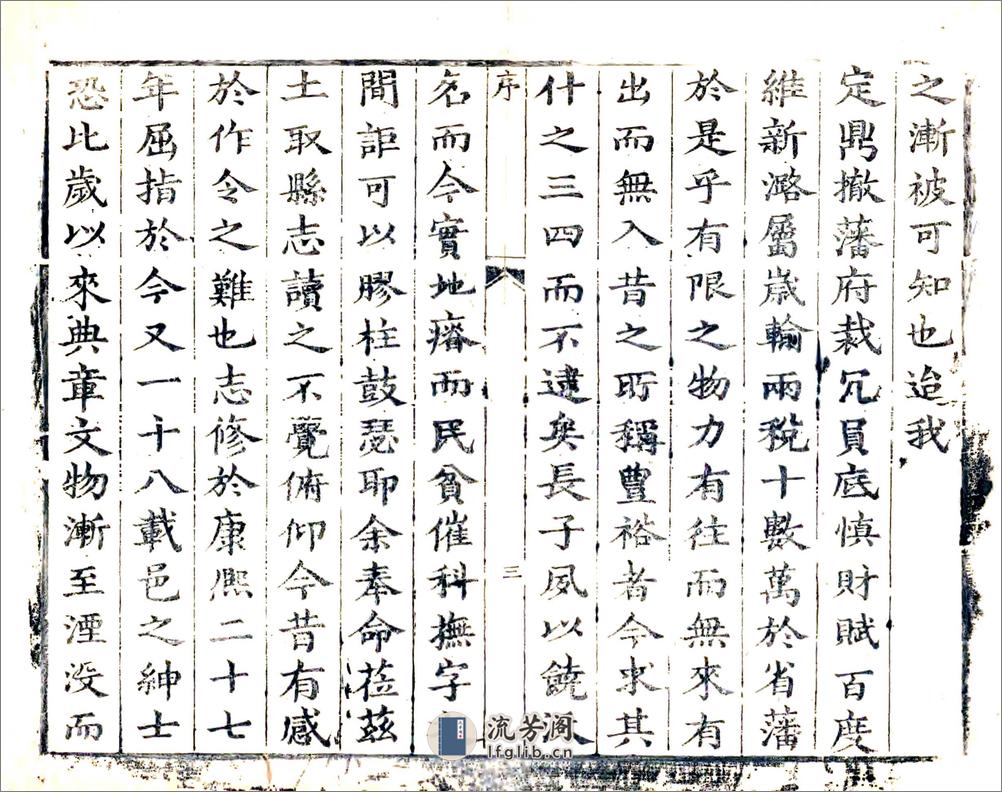 之漸被可知也迨我
定鼎撤藩府裁冗員底慎財賦百度
維新潞屬嵗輸兩稅十數萬於省藩
於是乎有限之物力有往而無來有
出而無入昔之所稱豐裕者今求其
什之三四而不逮矣長子夙以饒
序
三
名而今實地瘠而民貧催科撫字
間詎可以膠柱鼓瑟耶余奉命莅茲
土取縣志讀之不覺俯仰今昔有感
於作令之難也志修於康熙二十七
年屈指於今又一十八載邑之紳士
恐比歲以來典章文物漸至湮没而
流芳阁
lfglib.cn